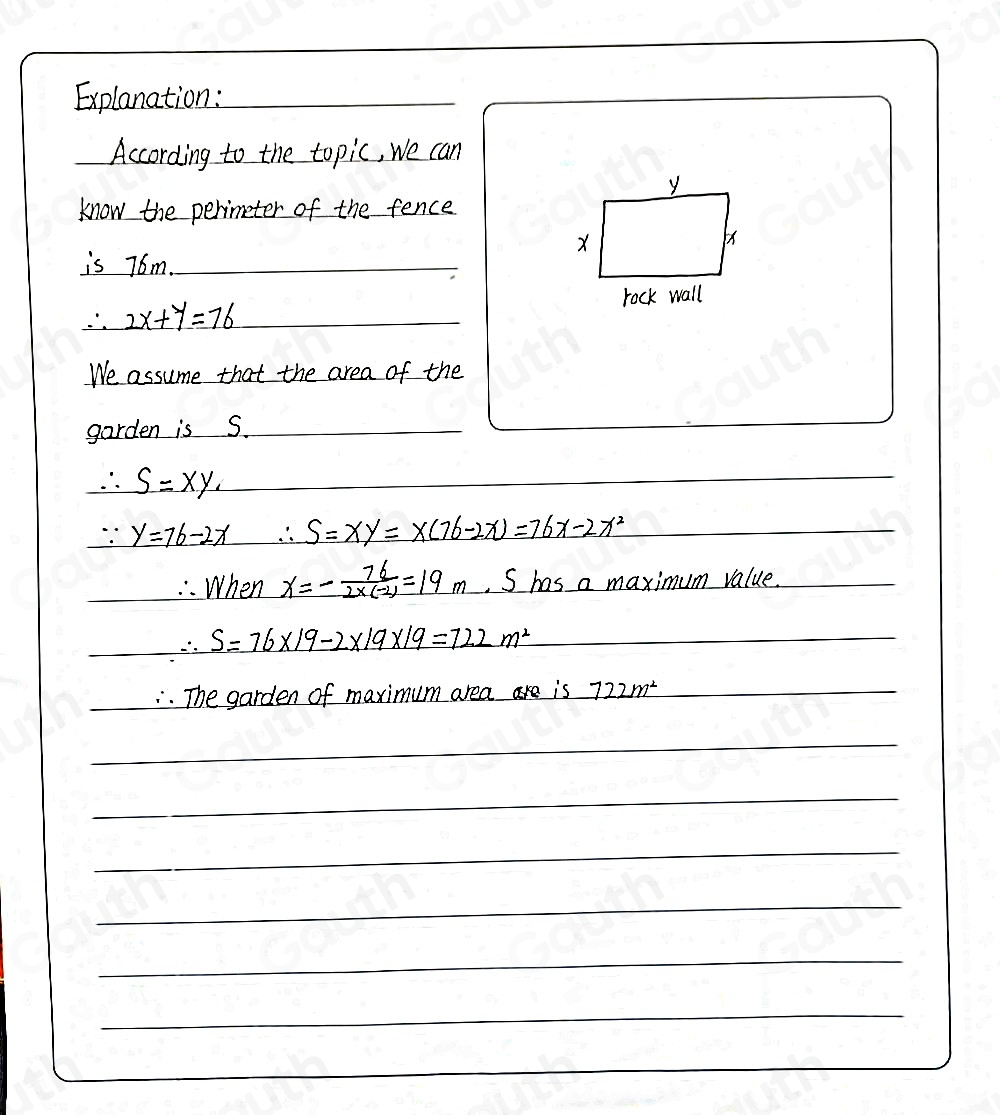 Explanation:
According to the topic, we can
know the perimeter of the fence
is 76m.
∴ 2x+y=76
We assume that the area of the
garden is S.
∴ S=xy.
∵ y=76-2x ∴ S=xy=x(76-2x)=76x-2x²
∴ When x=-76/2×(-2)=19 m, S has a maximum value.
∴ S=76×19-2×19×19=722 m²
∴ The garden of maximum area are is 722m²
y
x
x
rock wall
Gauth